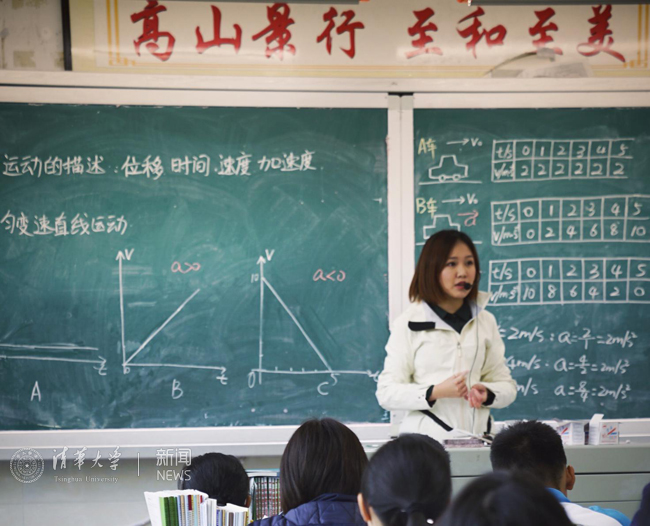 高山景行 至和至美
运动的描述.位移 时间.速度 加速度.
匀变速直线运动
V
a>0
V
10
a<0
t
A
t
B
0
C
t
A车 →V₀
t/s 0 1 2 3 4 5
v/m/s 2 2 2 2 2 2
B车 →V₀
a
t/s 0 1 2 3 4 5
v/m/s 0 2 4 6 8 10
t/s 0 1 2 3 4 5
v/m/s 10 8 6 4 2 0
=2m/s : a=2/1=2m/s²
4m/s. a=4/2=2m/s²
m/s a=8/4=2m/s²
清华大学
Tsinghua University
新闻
NEWS